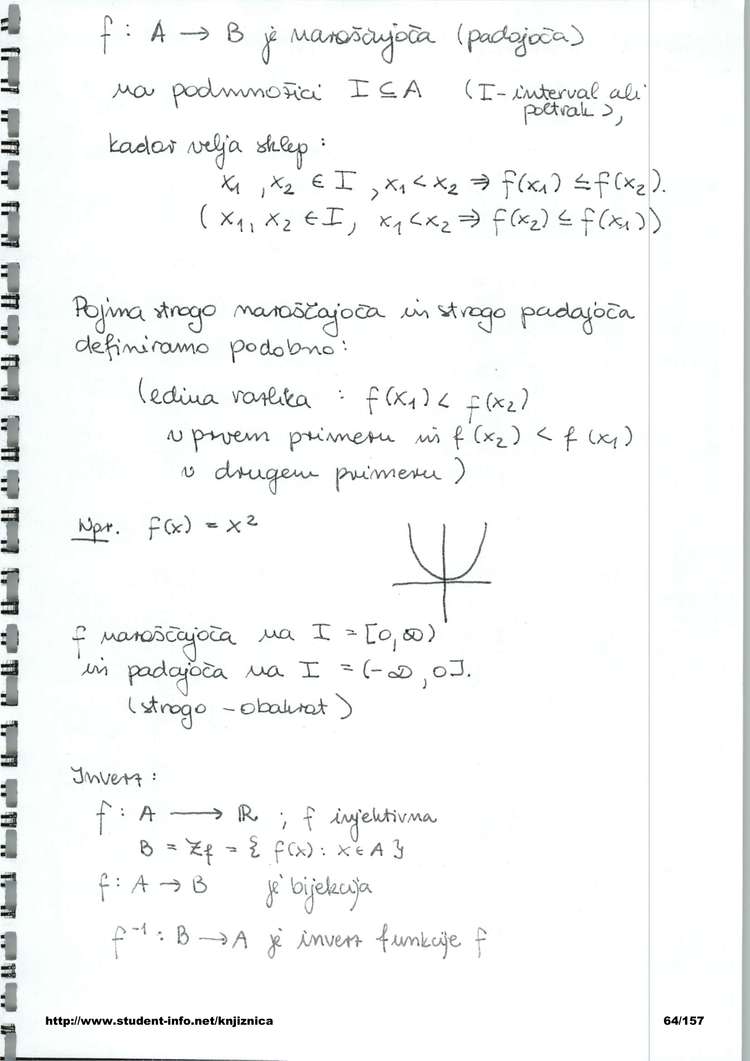 f : A → B je naraščajoča (padajoča)
na podmnožici I ⊆ A (I - interval ali
poltrak),
kadar velja sklep :
x₁ , x₂ ∈ I , x₁ < x₂ ⇒ f(x₁) ≤ f(x₂).
( x₁, x₂ ∈ I, x₁ < x₂ ⇒ f(x₂) ≤ f(x₁))
Pojma strogo naraščajoča in strogo padajoča
definiramo podobno :
(edina razlika : f(x₁) < f(x₂)
v prvem primeru in f(x₂) < f(x₁)
v drugem primeru )
Npr. f(x) = x²
f naraščajoča na I = [0,∞)
in padajoča na I = (-∞, 0].
(strogo - obakrat )
Inverz :
f : A → ℝ ; f injektivna
B = Zf = { f(x) : x ∈ A }
f : A → B je bijekcija
f⁻¹ : B → A je inverz funkcije f
http://www.student-info.net/knjiznica 64/157